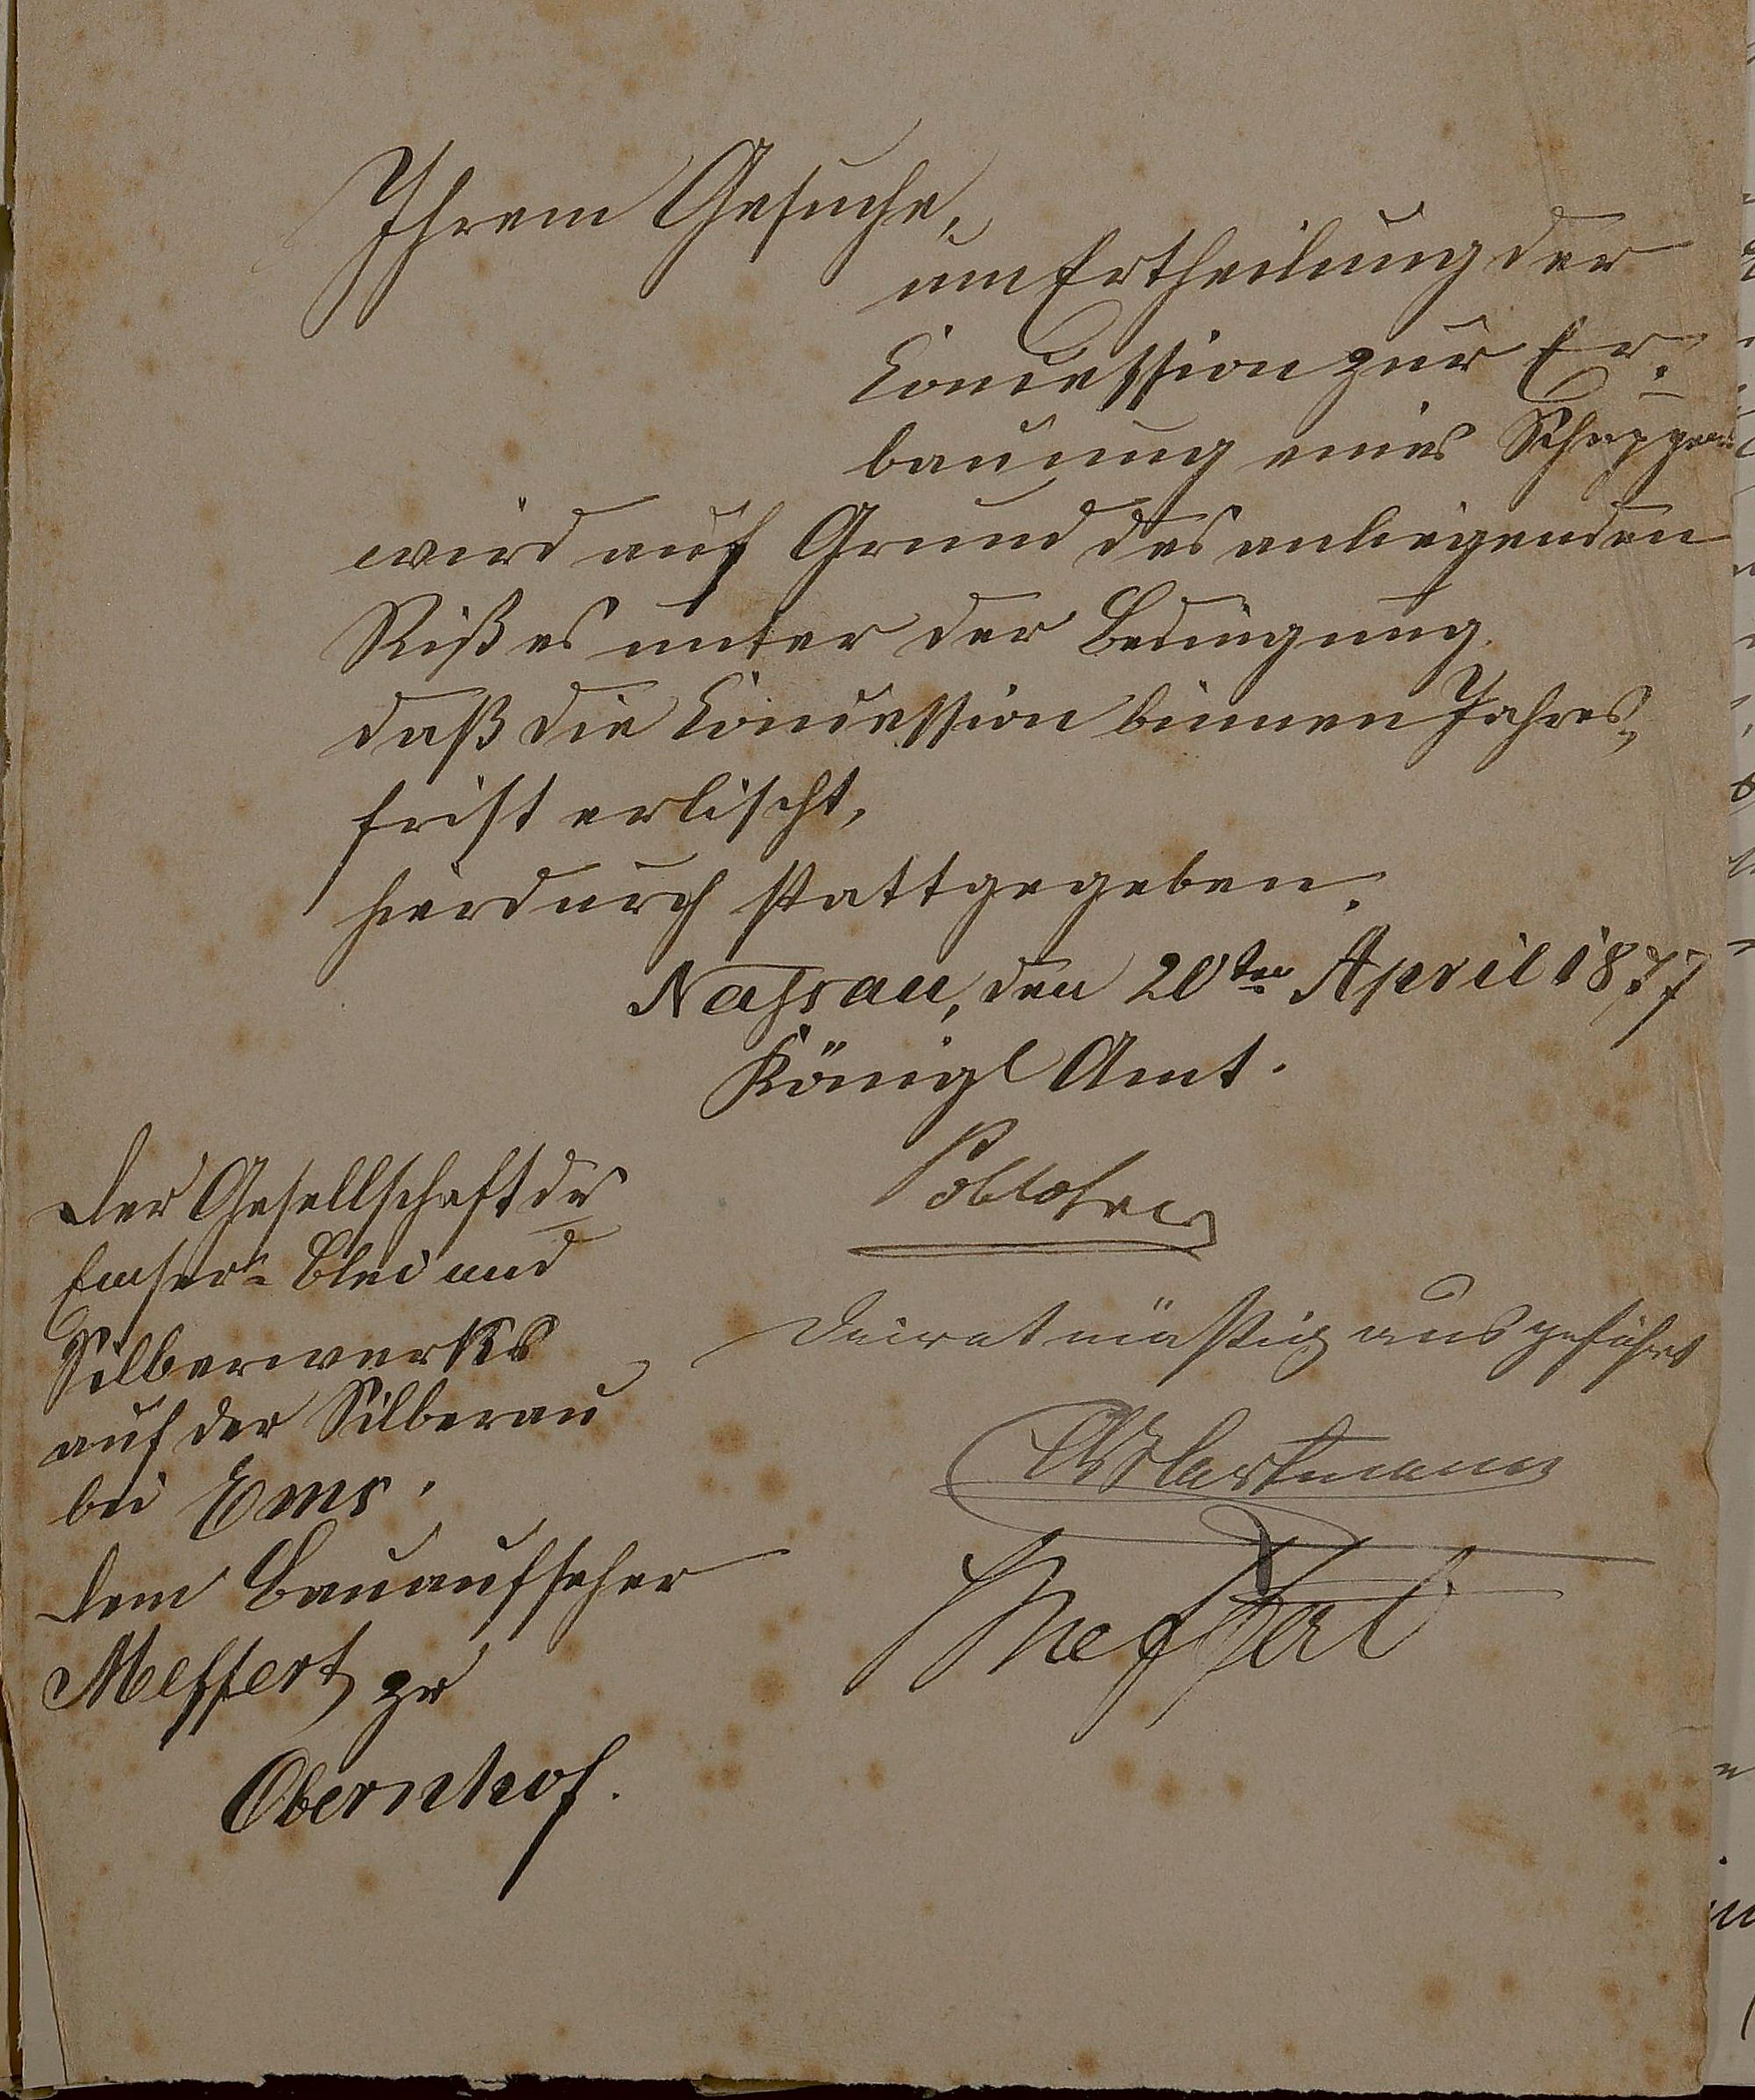 Ihrem Gesuche,
um Ertheilung der
Concession zur Er-
bauung eines Schoppens
wird auf Grund des anliegenden
Rißes unter der Bedingung,
daß die Concession binnen Jahres-
frist erlischt,
hierdurch stattgegeben.
Nassau, den 20ten April 1877
Königl Amt.
Der Gesellschaft des
Emser- Blei und
Silberwerks
auf der Silberau
bei Ems.
Decretmäßig ausgeführt
Hartmann
Meffert
Dem Bauaufseher
Meffert zu
Obernhof.